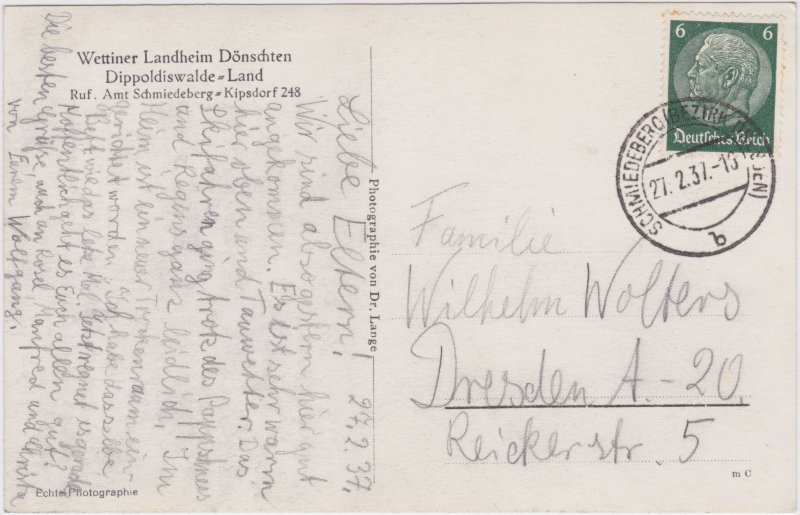 Wettiner Landheim Dönschten
Dippoldiswalde-Land
Ruf. Amt Schmiedeberg-Kipsdorf 248
27. 2. 37.
Liebe Eltern!
Wir sind also gestern hier gut
angekommen. Es ist sehr warm
hier oben und Tauwetter. Das
Skifahren ging trotz des Pappschnees
und Regens ganz leidlich. Im
Heim ist ein neuer Trockenraum ein-
gerichtet worden. Ich habe dasselbe
Bett wie das letzte Mal. Jetzt regnet es gerade
Hoffentlich geht es Euch allen gut?
Die besten Grüße, auch an Manfred und Christa
von Eurem Wolfgang.
Echte Photographie
Photographie von Dr. Lange
6 6
Deutsches Reich
SCHMIEDEBERG (BEZIRK DRESDEN)
27.2.37.-18
b
Familie
Wilhelm Wolters
Dresden A.-20.
Reickerstr. 5
m C